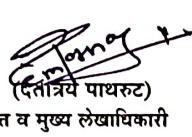 (दत्तात्रय पाथरुट)
त व मुख्य लेखाधिकारी